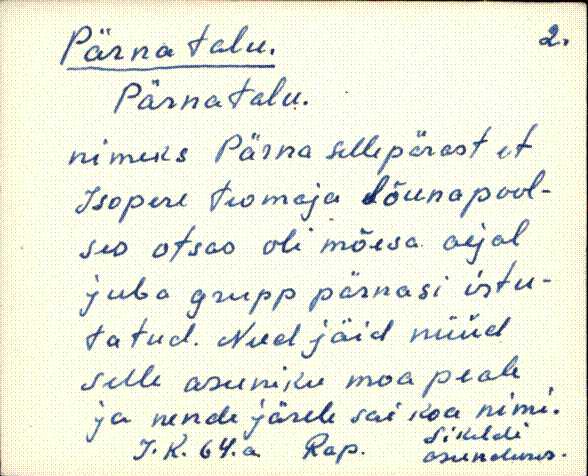 Pärna talu. 2.
Pärna talu.
nimeks Pärna sellepärast et
Isopere teomaja lõunapool-
ses otsas oli mõesa aejal
juba grupp pärnasi istu-
tatud. Need jäid nüüd
selle asuniku moa peale
ja nende järele sai koa nimi.
J. K. 64.a. Rap. Sikeldi
asunduses.